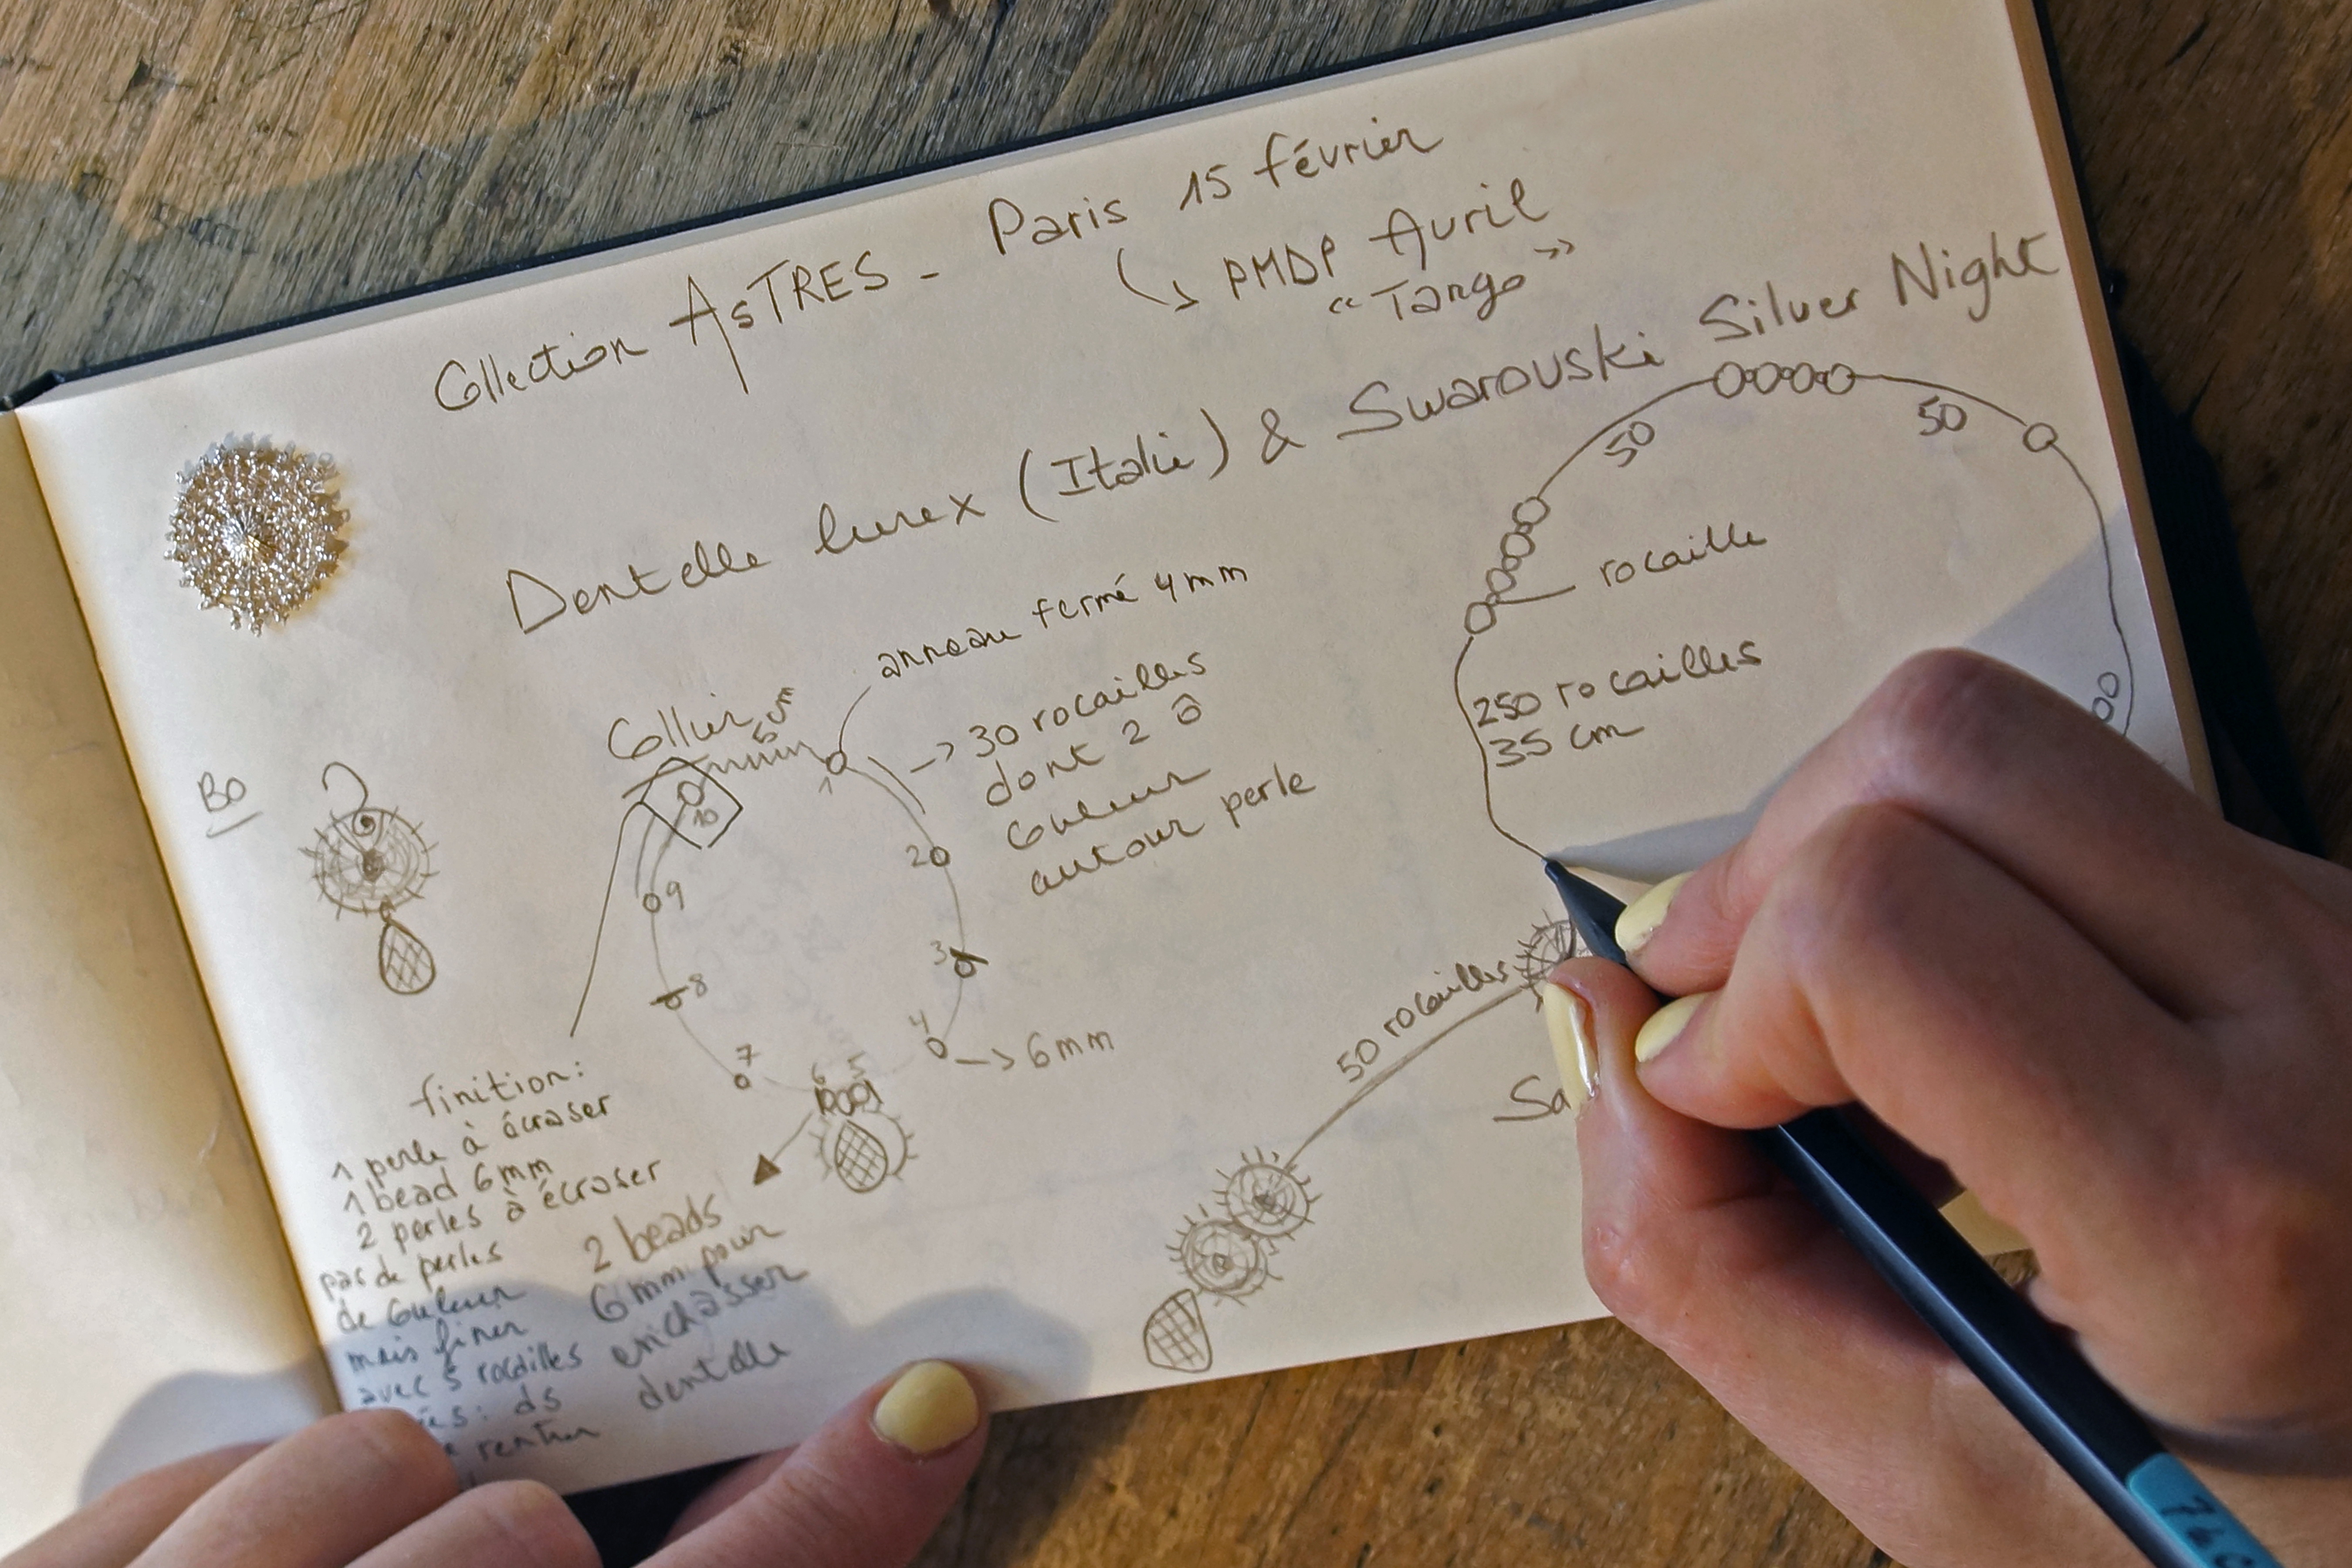 Collection AsTRES - Paris 15 février
↳ PMDP Avril
“Tango”
Dentelle lurex (Italie) & Swarovski Silver Night
anneau fermé 4mm
Collier
-> 30 rocailles
dont 2 ô
couleur
autour perle
BO
1
2
3
4
5
6
7
8
9
10
-> 6mm
finition:
1 perle à écraser
1 bead 6mm
2 perles à écraser
pas de perles
de couleur
mais finir
avec 5 rocailles
ds
rentrer
2 beads
6mm pour
enchâsser
dentelle
50
50
rocaille
250 rocailles
35 cm
50 rocailles
Sa